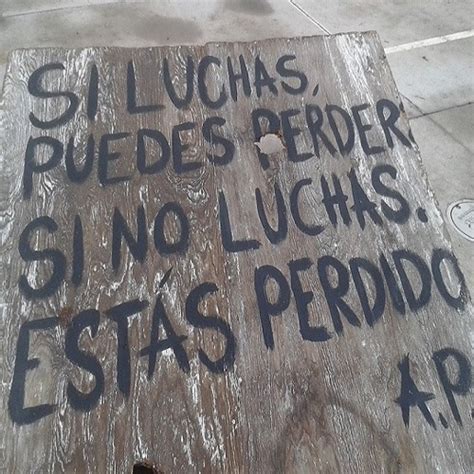 SI LUCHAS,
PUEDES PERDER
SI NO LUCHAS.
ESTÁS PERDIDO
A.P